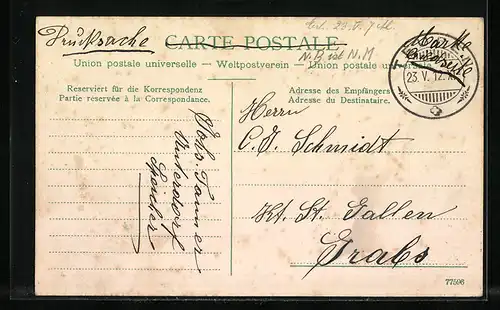 Drucksache
CARTE POSTALE
Marke
Union postale universelle. — Weltpostverein — Union postale universelle
N.B. ist N.M
23. V. 12.
Reserviert für die Korrespondenz
Partie reservée à la Correspondance.
Adresse des Empfängers
Adresse du Destinataire.
Herrn
C. J. Schmidt
Kt. St. Gallen
Grabs
Johs. Tanner
Unterdorf
Speicher
77596